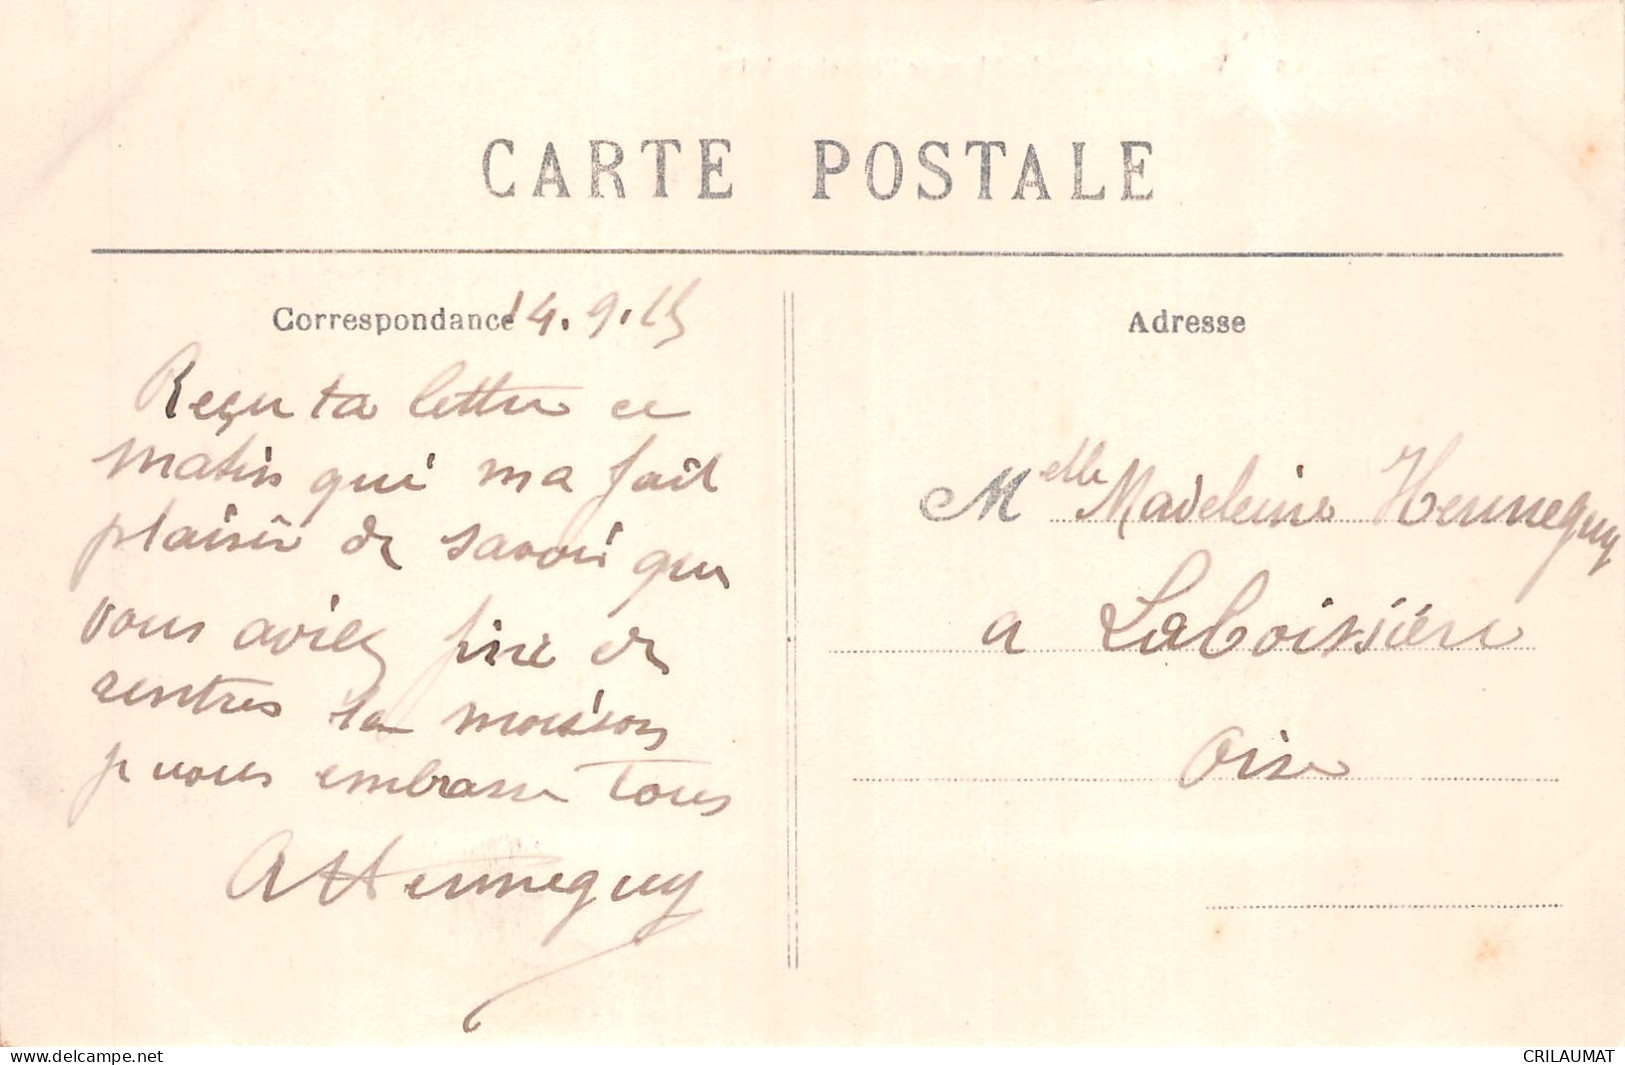 CARTE POSTALE
Correspondance 14.9.15
Adresse
Reçu ta lettre ce
matin qui ma fait
plaisir de savoir que
vous aviez fini de
rentres la moisson
je vous embrasse tous
A Hennequy
Melle Madeleine Hennequy
a Laboissière
Oise
delcampe.net
CRILAUMAT